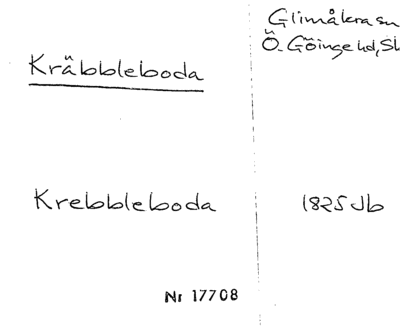 Glimåkra sn
Ö. Göinge hd, Sk
Kräbbleboda
Krebbleboda
1825 Jb
Nr 17708